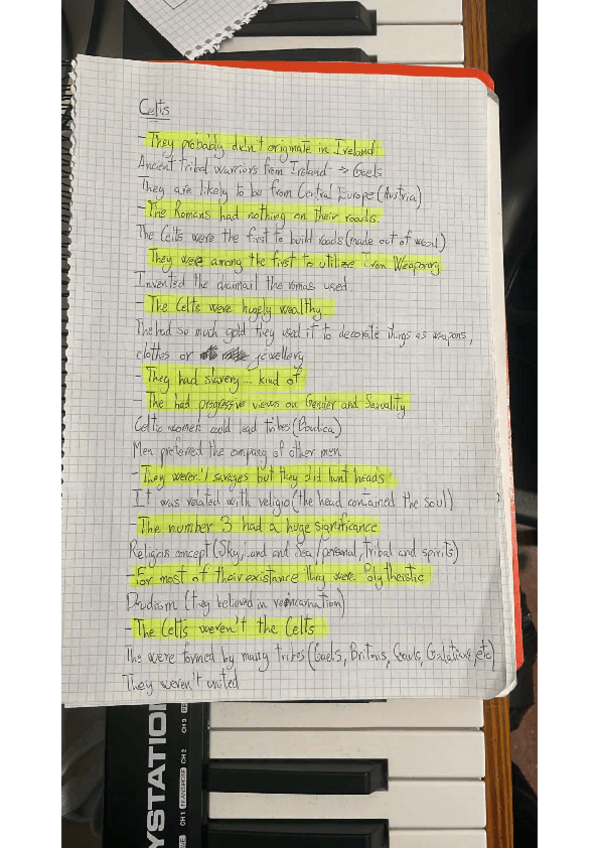 Celts
- They probably didn't originate in Ireland
Ancient tribal warriors from Ireland -> Gaels
They are likely to be from Central Europe (Austria)
- The Romans had nothing on their roads.
The Celts were the first to build roads (made out of wood)
- They were among the first to utilize Iron Weaponry
Invented the chainmail the romas used.
- The Celts were hugely wealthy
The had so much gold they used it to decorate things as weapons,
clothes or jewellery
- They had slavery... kind of
- The had progressive views on Gender and Sexuality
Celtic women could lead tribes (Boudica)
Men preferred the company of other men
- They weren't savages but they did hunt heads
It was related with religio (the head contained the soul)
- The number 3 had a huge significance
Religius concept (Sky, Land and Sea/personal, tribal and spirits)
- For most of their existance they were Polytheistic
Druidism (they believed in reincarnation)
- The Celts weren't the Celts
The were formed by many tribes (Gaels, Britons, Gauls, Galatians, etc)
They weren't united
YSTATION
CH 1 TRANSPOSE CH 2
CH 3